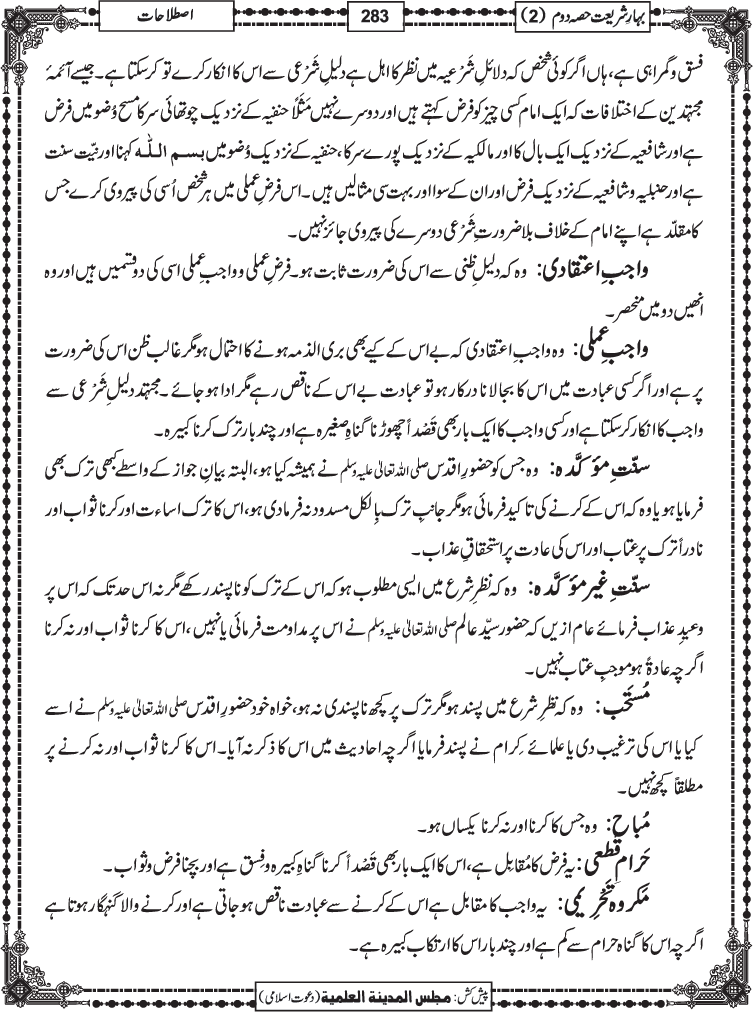 بہارِ شریعت حصہ دوم (2)
283
اصطلاحات
فسق و گمراہی ہے، ہاں اگر کوئی شخص کہ دلائلِ شَرْعِیہ میں نظر کا اہل ہے دلیلِ شَرْعی سے اس کا انکار کرے تو کر سکتا ہے۔ جیسے آئمۂ
مجتہدین کے اختلافات کہ ایک امام کسی چیز کو فرض کہتے ہیں اور دوسرے نہیں مَثَلًا حنفیہ کے نزدیک چوتھائی سر کا مسح وُضو میں فرض
ہے اور شافعیہ کے نزدیک ایک بال کا اور مالکیہ کے نزدیک پورے سر کا، حنفیہ کے نزدیک وُضو میں بسم اللّٰہ کہنا اور نیّت سنت
ہے اور حنبلیہ و شافعیہ کے نزدیک فرض اور ان کے سوا اور بہت سی مثالیں ہیں۔ اس فرضِ عملی میں ہر شخص اُسی کی پیروی کرے جس
کا مقلّد ہے اپنے امام کے خلاف بلا ضرورتِ شَرْعی دوسرے کی پیروی جائز نہیں۔
واجبِ اعتقادی: وہ کہ دلیلِ ظنی سے اس کی ضرورت ثابت ہو۔ فرضِ عملی و واجبِ عملی اسی کی دو قسمیں ہیں اور وہ
انھیں دو میں منحصر۔
واجبِ عملی: وہ واجبِ اعتقادی کہ بے اس کے کیے بھی بری الذمہ ہونے کا احتمال ہو مگر غالب ظن اس کی ضرورت
پر ہے اور اگر کسی عبادت میں اس کا بجالانا درکار ہو تو عبادت بے اس کے ناقص رہے مگر ادا ہو جائے۔ مجتہد دلیلِ شَرْعی سے
واجب کا انکار کر سکتا ہے اور کسی واجب کا ایک بار بھی قَصْداً چھوڑنا گناہِ صغیرہ ہے اور چند بار ترک کرنا کبیرہ۔
سنّتِ مؤکَّدہ: وہ جس کو حضورِ اقدس صلی اللہ تعالیٰ علیہ وسلم نے ہمیشہ کیا ہو، البتہ بیانِ جواز کے واسطے کبھی ترک بھی
فرمایا ہو یا وہ کہ اس کے کرنے کی تاکید فرمائی ہو مگر جانبِ ترک بِالکل مسدود نہ فرما دی ہو، اس کا ترک اساءت اور کرنا ثواب اور
نادراً ترک پر عتاب اور اس کی عادت پر استحقاقِ عذاب۔
سنّتِ غیر مؤکَّدہ: وہ کہ نظرِ شرع میں ایسی مطلوب ہو کہ اس کے ترک کو ناپسند رکھے مگر نہ اس حد تک کہ اس پر
وعیدِ عذاب فرمائے عام ازیں کہ حضور سیّدِ عالم صلی اللہ تعالیٰ علیہ وسلم نے اس پر مداومت فرمائی یا نہیں، اس کا کرنا ثواب اور نہ کرنا
اگرچہ عادۃً ہو موجبِ عتاب نہیں۔
مُستَحَب: وہ کہ نظرِ شرع میں پسند ہو مگر ترک پر کچھ ناپسندی نہ ہو، خواہ خود حضورِ اقدس صلی اللہ تعالیٰ علیہ وسلم نے اسے
کیا یا اس کی ترغیب دی یا علمائے کِرام نے پسند فرمایا اگرچہ احادیث میں اس کا ذکر نہ آیا۔ اس کا کرنا ثواب اور نہ کرنے پر
مطلقاً کچھ نہیں۔
مُباح: وہ جس کا کرنا اور نہ کرنا یکساں ہو۔
حَرامِ قطعی: یہ فرض کا مُقابِل ہے، اس کا ایک بار بھی قَصْداً کرنا گناہِ کبیرہ و فِسق ہے اور بچنا فرض و ثواب۔
مکروہِ تَحْرِیمی: یہ واجب کا مقابل ہے اس کے کرنے سے عبادت ناقص ہو جاتی ہے اور کرنے والا گنہگار ہوتا ہے
اگرچہ اس کا گناہ حرام سے کم ہے اور چند بار اس کا ارتکاب کبیرہ ہے۔
پیش کش: مجلس المدینة العلمیة (دعوتِ اسلامی)